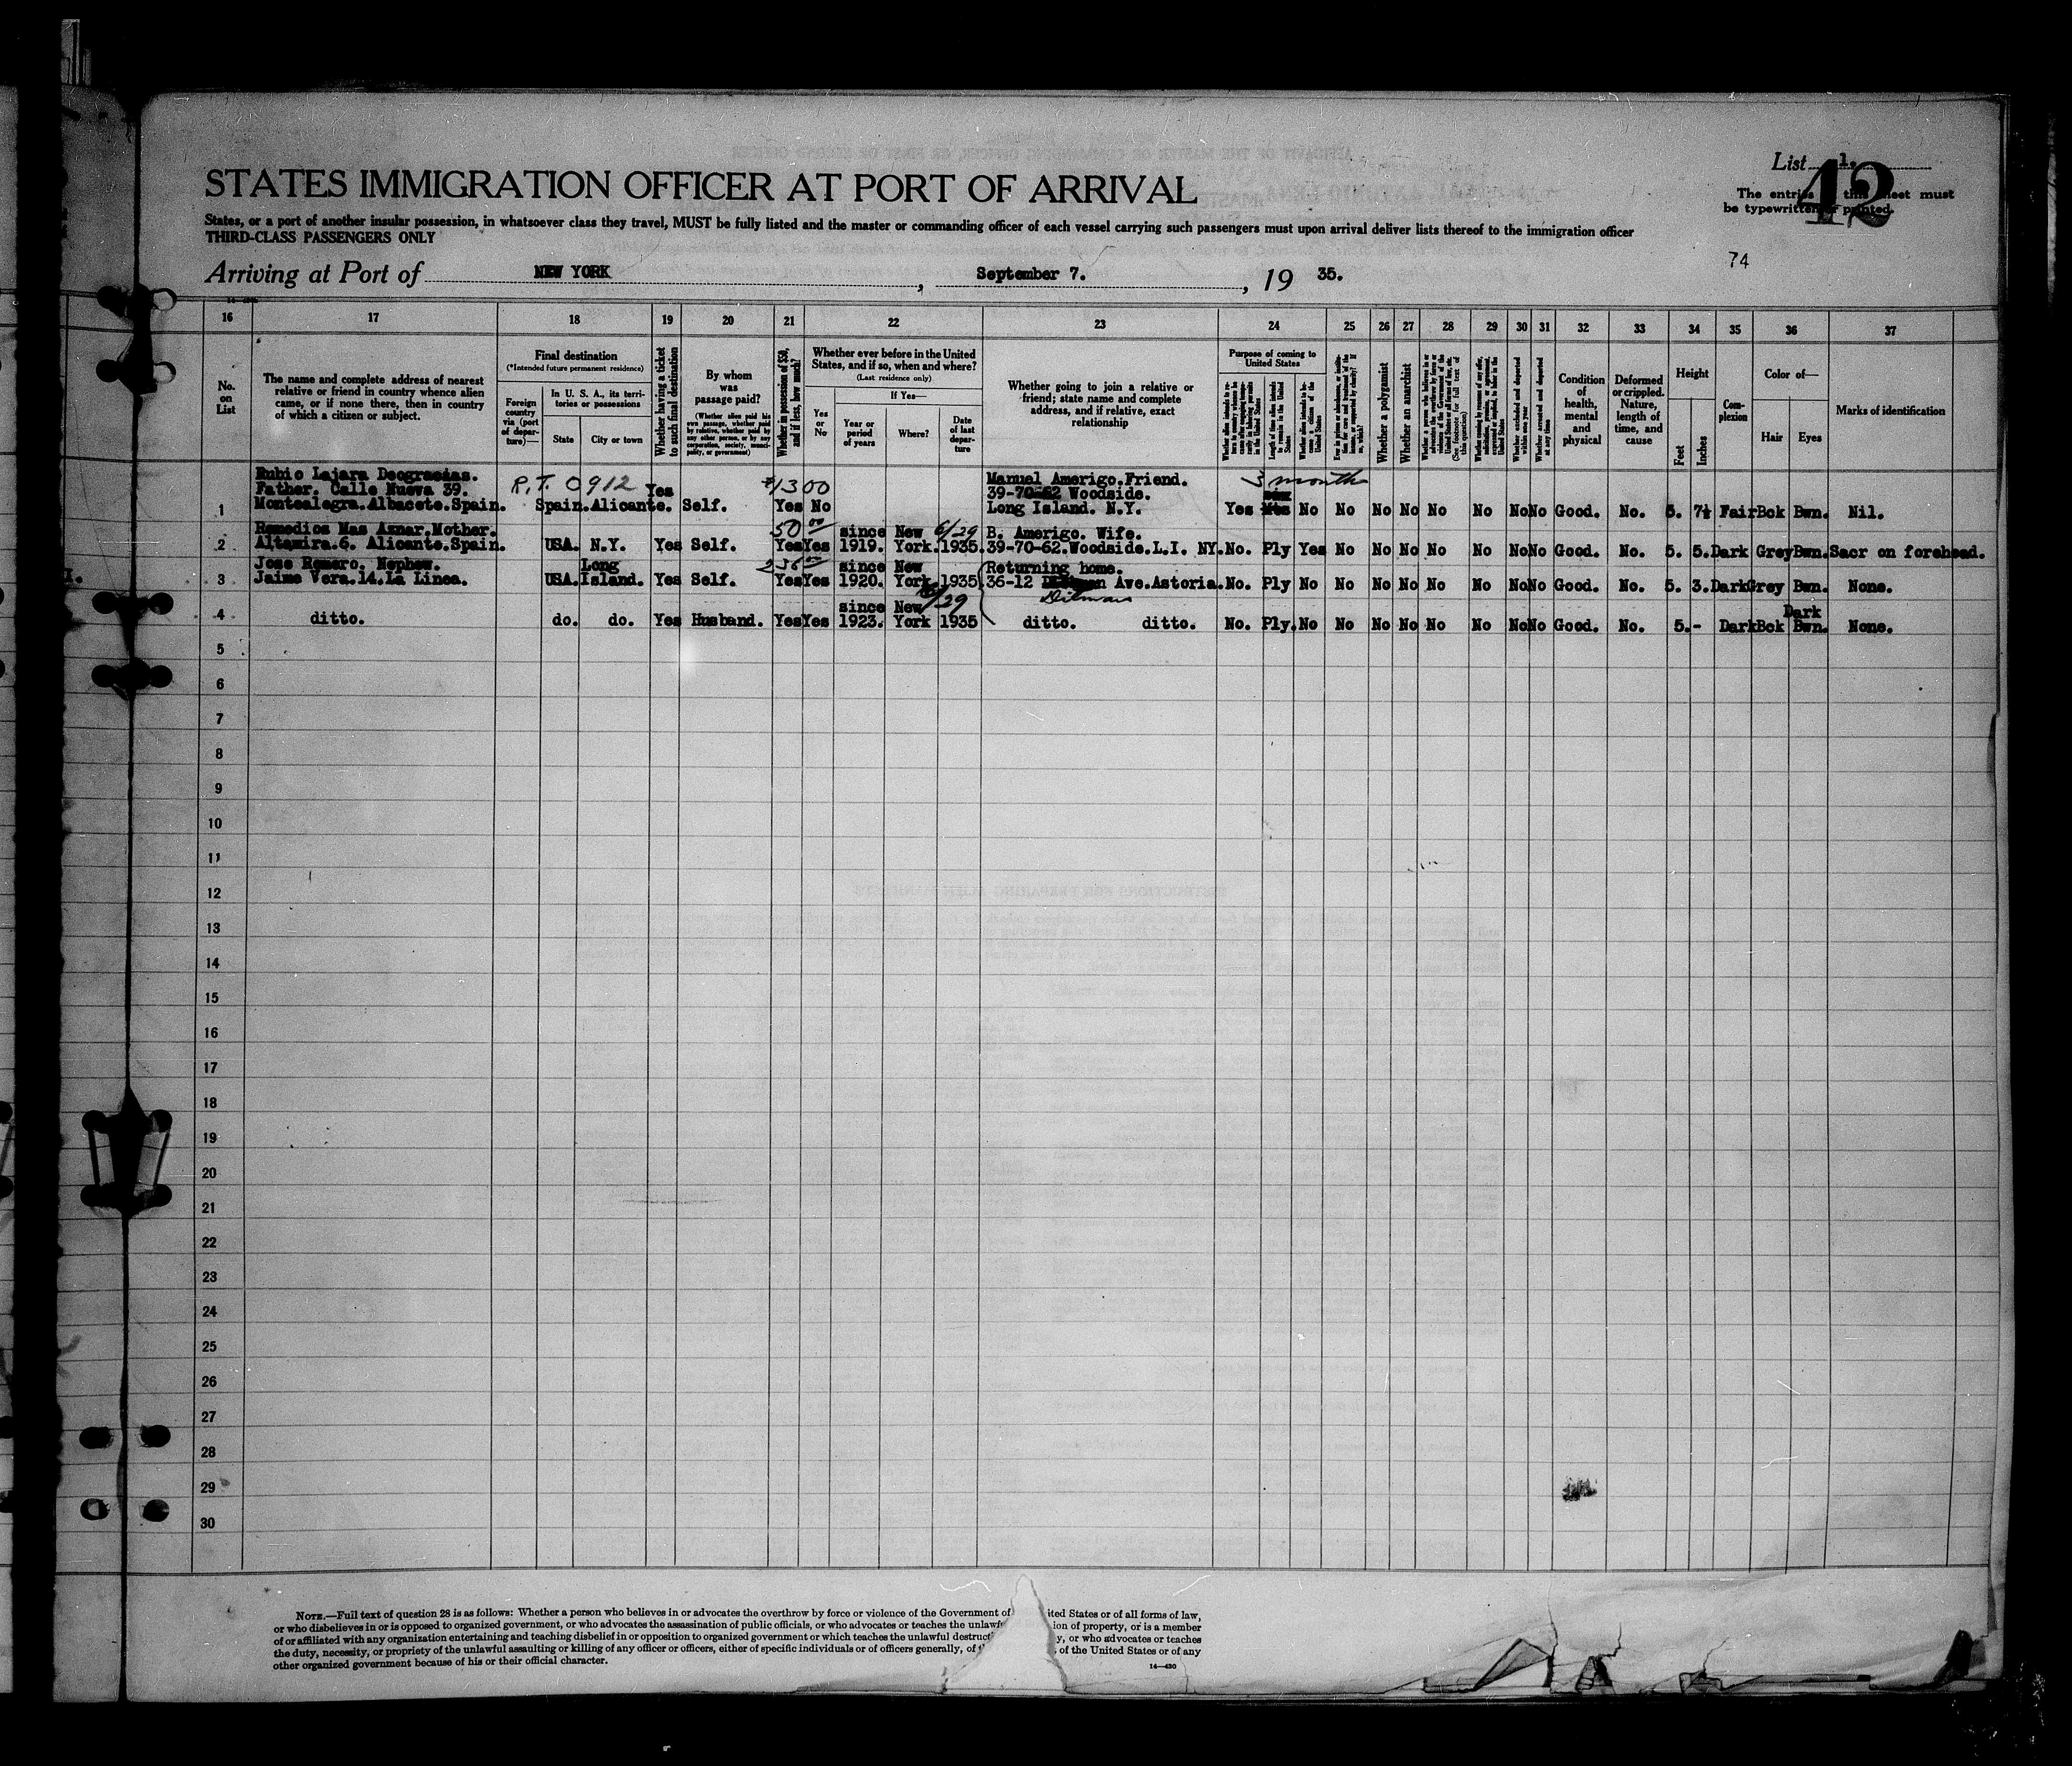 List 1.
42
The entries this sheet must
be typewritten or printed.
74
STATES IMMIGRATION OFFICER AT PORT OF ARRIVAL
States, or a port of another insular possession, in whatsoever class they travel, MUST be fully listed and the master or commanding officer of each vessel carrying such passengers must upon arrival deliver lists thereof to the immigration officer
THIRD-CLASS PASSENGERS ONLY
Arriving at Port of NEW YORK, September 7., 19 35.
16 17 18 19 20 21 22 23 24 25 26 27 28 29 30 31 32 33 34 35 36 37
No. on List
The name and complete address of nearest relative or friend in country whence alien came, or if none there, then in country of which a citizen or subject.
Final destination
(*Intended future permanent residence)
Foreign country via (port of departure)—
In U. S. A., its territories or possessions
State
City or town
Whether having a ticket to such final destination
By whom was passage paid?
(Whether alien paid his own passage, whether paid by relative, whether paid by any other person, or by any corporation, society, municipality, or government)
Whether in possession of $50, and if less, how much?
Whether ever before in the United States, and if so, when and where?
(Last residence only)
Yes or No
If Yes—
Year or period of years
Where?
Date of last departure
Whether going to join a relative or friend; state name and complete address, and if relative, exact relationship
Purpose of coming to United States
Length of time alien intends to remain in the United States
Whether alien intends to become a citizen of the United States
Whether a polygamist
Whether an anarchist
(See footnote for full text of this question)
Whether excluded and deported within one year
Whether arrested and deported at any time
Condition of health, mental and physical
Deformed or crippled. Nature, length of time, and cause
Height
Feet
Inches
Complexion
Color of—
Hair
Eyes
Marks of identification
Rubio Lajara Deogracias. R.T. 0912 $1300 Manuel Amerigo.Friend. 3 month
Father. Calle Nueva 39. Yes 39-70-62 Woodside.
1 Montealegra.Albacete.Spain. Spain.Alicante. Self. Yes No Long Island. N.Y. Yes No No No No No No No No Good. No. 5. 7½ Fair Bck Bwn. Nil.
Remedios Mas Aznar.Mother. 50 00 since New 6/29 B. Amerigo. Wife.
2 Altamira.6. Alicante.Spain. USA. N.Y. Yes Self. Yes Yes 1919. York. 1935. 39-70-62.Woodside.L.I. NY. No. Ply Yes No No No No No No No Good. No. 5. 5. Dark Grey Bwn. Sacr on forehead.
Jose Romero. Nephew. Long since New Returning home.
3 Jaime Vera.14.La Linea. USA. Island. Yes Self. Yes Yes 1920. York 1935 36-12 Ave.Astoria. No. Ply No No No No No No No No Good. No. 5. 3. Dark Grey Bwn. None.
Ditman
since New /29 Dark
4 ditto. do. do. Yes Husband. Yes Yes 1923. York 1935 ditto. ditto. No. Ply. No No No No No No No No Good. No. 5.- Dark Bck Bwn. None.
5
6
7
8
9
10
11
12
13
14
15
16
17
18
19
20
21
22
23
24
25
26
27
28
29
30
NOTE.—Full text of question 28 is as follows: Whether a person who believes in or advocates the overthrow by force or violence of the Government of ited States or of all forms of law,
or who disbelieves in or is opposed to organized government, or who advocates the assassination of public officials, or who advocates or teaches the unlawf ion of property, or is a member
of or affiliated with any organization entertaining and teaching disbelief in or opposition to organized government or which teaches the unlawful destruct y, or who advocates or teaches
the duty, necessity, or propriety of the unlawful assaulting or killing of any officer or officers, either of specific individuals or of officers generally, of of the United States or of any
other organized government because of his or their official character.
14—430